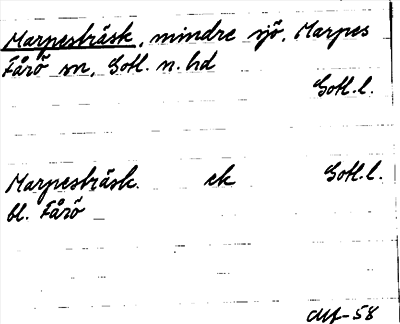 Marpesträsk, mindre sjö, Marpes
Fårö sn, Gotl. n. hd
Gotl.l.
Marpesträsk. ek Gotl.l.
bl. Fårö
-58